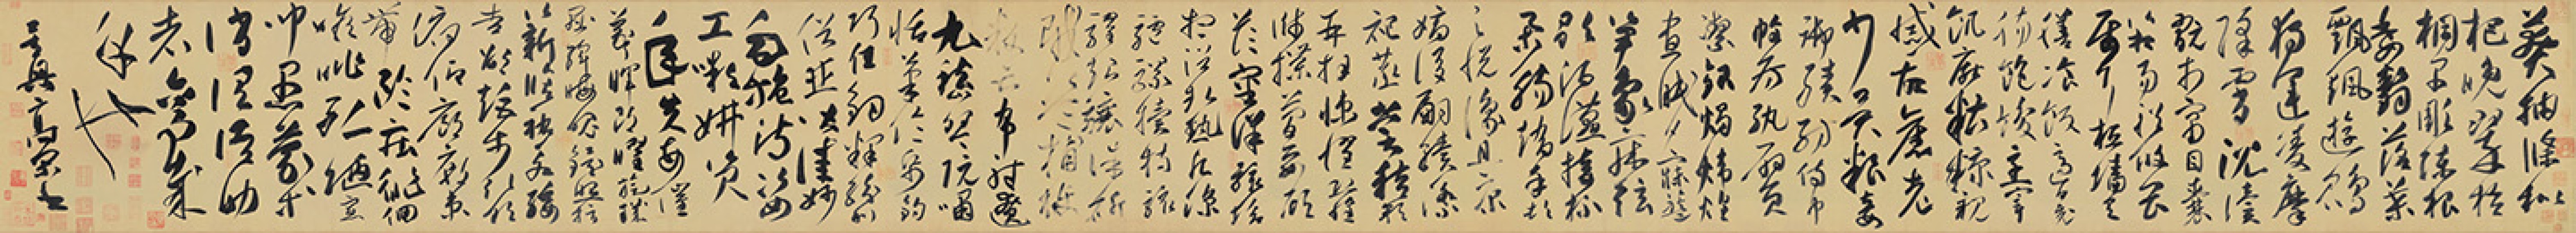 莽抽條枇
杷晚翠梧
桐早彫陳根
委翳落葉
飄颻遊鵾
獨運凌摩
絳霄耽讀
翫市寓目囊
箱易輶攸畏
屬耳垣牆具
膳飡飯適口充
腸飽飫烹宰
飢厭糟糠親
慼故舊老
少異糧妾
御績紡侍巾
帷房紈扇員
潔銀燭煒煌
晝眠夕寐籃
筍象床弦
歌酒讌接杯
舉觴矯手頓
足悅豫且康
嫡後嗣續祭
祀蒸嘗稽顙
再拜悚懼恐惶
牋牒簡要顧
答審詳骸垢
想浴執熱願涼
驢騾犢特駭
躍超驤誅斬
賊盜捕獲
叛亡布射遼
丸嵇琴阮嘯
恬筆倫紙鈞
巧任釣釋紛利
俗並皆佳妙
毛施淑姿
工顰妍笑
年矢每催
羲暉朗曜旋璣
懸斡晦魄環照指
薪修祜永綏
吉劭矩步引領
俯仰廊廟束
帶矜莊徘徊
瞻眺孤陋寡
聞愚蒙等
誚謂語助
者焉哉
乎也
吳興高閑書